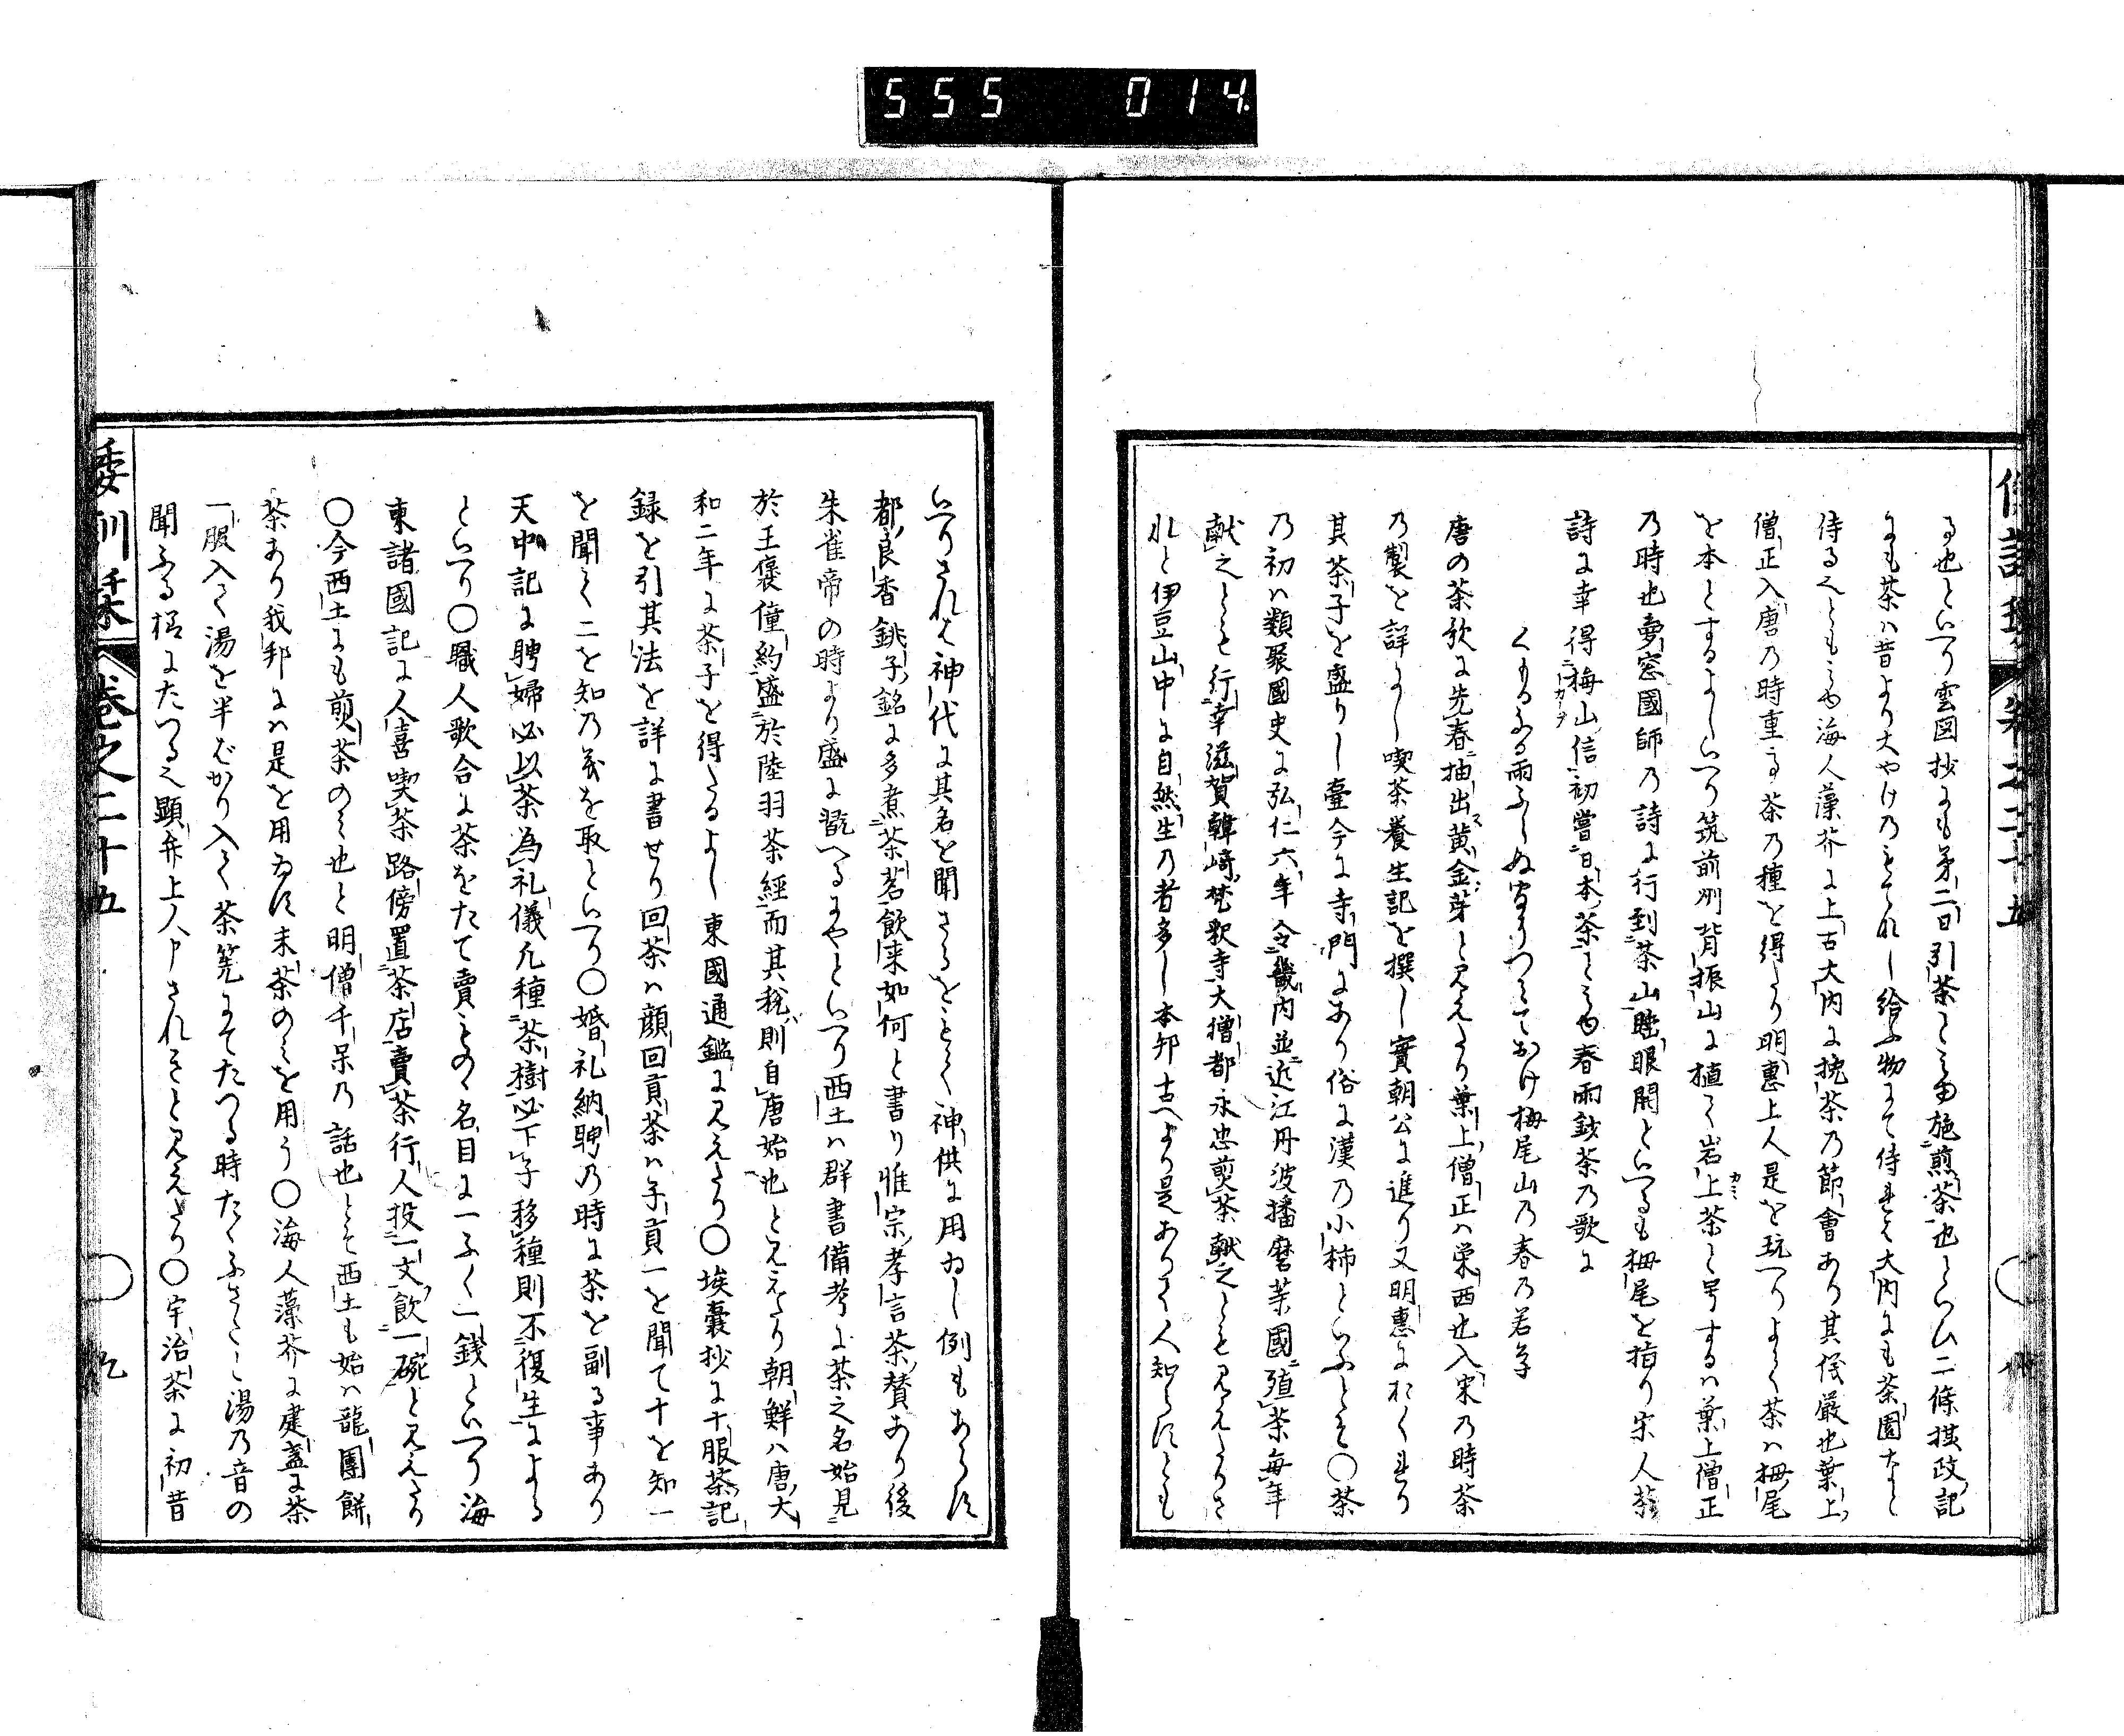 555 014
る也といへり雲図抄にも第二日引茶とミゆ施煎茶也といひ二條棋政記
にも茶ハ昔より大やけのもてなし給ふ物にて侍れは大内にも茶園なと
侍る也ともミゆ海人藻芥に上古大内に挽茶乃節會あり其儀嚴也葉上
僧正入唐乃時重る茶乃種を得たり明惠上人是を玩へりよく茶ハ栂尾
を本とするよしいへり筑前州背振山に植て岩上茶と号するハ葉上僧正
乃時也夢窓國師乃詩に行到茶山睡眼開といへるも栂尾を指り宋人
詩に幸得梅山信初嘗日本茶とミゆ春雨鈔茶乃歌に
くもるふる雨ふらぬまにつミておけ栂尾山乃春乃若草
唐の茶歌に先春抽出黄金芽と見えたり葉上僧正ハ栄西也入宋乃時茶
乃製を詳にし喫茶養生記を撰し實朝公に進り又明惠におくれり
其茶子を盛りし壷今に寺門にあり俗に漢乃小柿といふとそ〇茶
乃初ハ類聚國史に弘仁六年令畿内並近江丹波播磨等國殖茶毎年
献之とも行幸滋賀韓﨑梵釈寺大僧都永忠煎茶献之とも見えたりさ
れと伊豆山中に自然生乃者多し本邦古へより是ありて人知らすとも
いへりされは神代に其名を聞さるをもて神供に用ゐし例もあらす
都良香銚子銘に多煮茶茗飲来如何と書り惟宗孝言茶賛あり後
朱雀帝の時より盛に翫へるにやといへり西土ハ群書備考に茶之名始見
於王褒僮約盛於陸羽茶經而其税則自唐始也と見えたり朝鮮ハ唐大
和二年に茶子を得たるよし東國通鑑に見えたり〇埃嚢抄に十服茶記
録を引其法を詳に書せり回茶ハ顔回貢茶ハ子貢一を聞て十を知一
を聞て二を知乃義を取といへり〇婚礼納聘乃時に茶を副る事あり
天中記に聘婦必以茶為礼儀凡種茶樹必下子移種則不復生による
といへり〇職人歌合に茶をたて賣ものゝ名目に一ふく一銭といへり海
東諸國記に人喜喫茶路傍置茶店賣茶行人投一文飲一碗と見えたり
〇今西土にも煎茶のミ也と明僧千呆乃話也とそ西土も始ハ龍團餅
茶あり我邦にハ是を用ゐす末茶のミを用う〇海人藻芥に建盞に茶
一服入て湯を半ばかり入て茶筅にてたつる時たゝふさゝと湯乃音の
聞ふる様にたつる也顕弁上人申されきと見えたり〇宇治茶に初昔
倭訓栞 巻之二十五 九